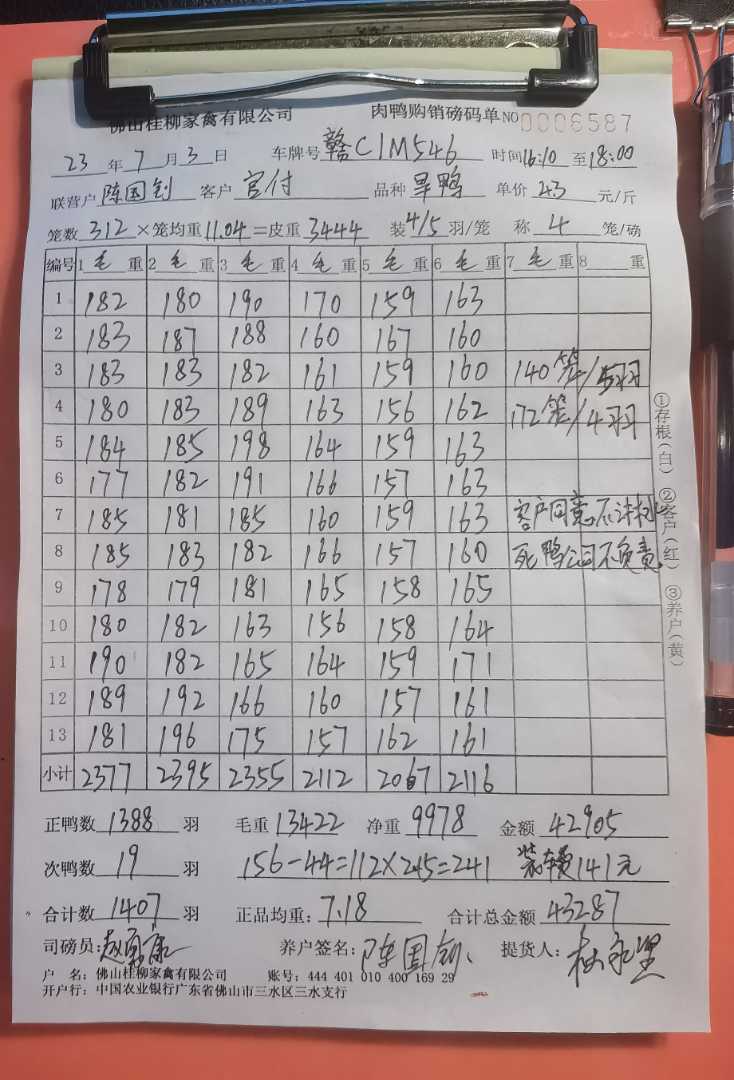 佛山桂柳家禽有限公司 肉鸭购销磅码单 NO 0006587
23 年 7 月 3 日 车牌号 赣C1M546 时间 16:10 至 18:00
联营户 陈国钊 客户 官付 品种 旱鸭 单价 4.3 元/斤
笼数 312 × 笼均重 11.04 = 皮重 3444 装 4/5 羽/笼 称 4 笼/磅
编号 1 毛 重 2 毛 重 3 毛 重 4 毛 重 5 毛 重 6 毛 重 7 毛 重 8 重
1 182 180 190 170 159 163
2 183 187 188 160 167 160
3 183 183 182 161 159 160 140笼/5羽
4 180 183 189 163 156 162 172笼/4羽
5 184 185 198 164 159 163
6 177 182 191 166 157 163
7 185 181 185 160 159 163 客户同意不
8 185 183 182 166 157 160 死鸭公司不负责
9 178 179 181 165 158 165
10 180 182 163 156 158 164
11 190 182 165 164 159 171
12 189 192 166 160 157 161
13 181 196 175 157 162 161
小计 2377 2395 2355 2112 2067 2116
正鸭数 1388 羽 毛重 13422 净重 9978 金额 42905
次鸭数 19 羽 156-44=112×2.15=241 装车费141元
合计数 1407 羽 正品均重: 7.18 合计总金额 43287
司磅员: 养户签名: 陈国钊 提货人:
户 名: 佛山桂柳家禽有限公司 账号: 444 401 010 400 169 29
开户行: 中国农业银行广东省佛山市三水区三水支行
①存根(白) ②客户(红) ③养户(黄)